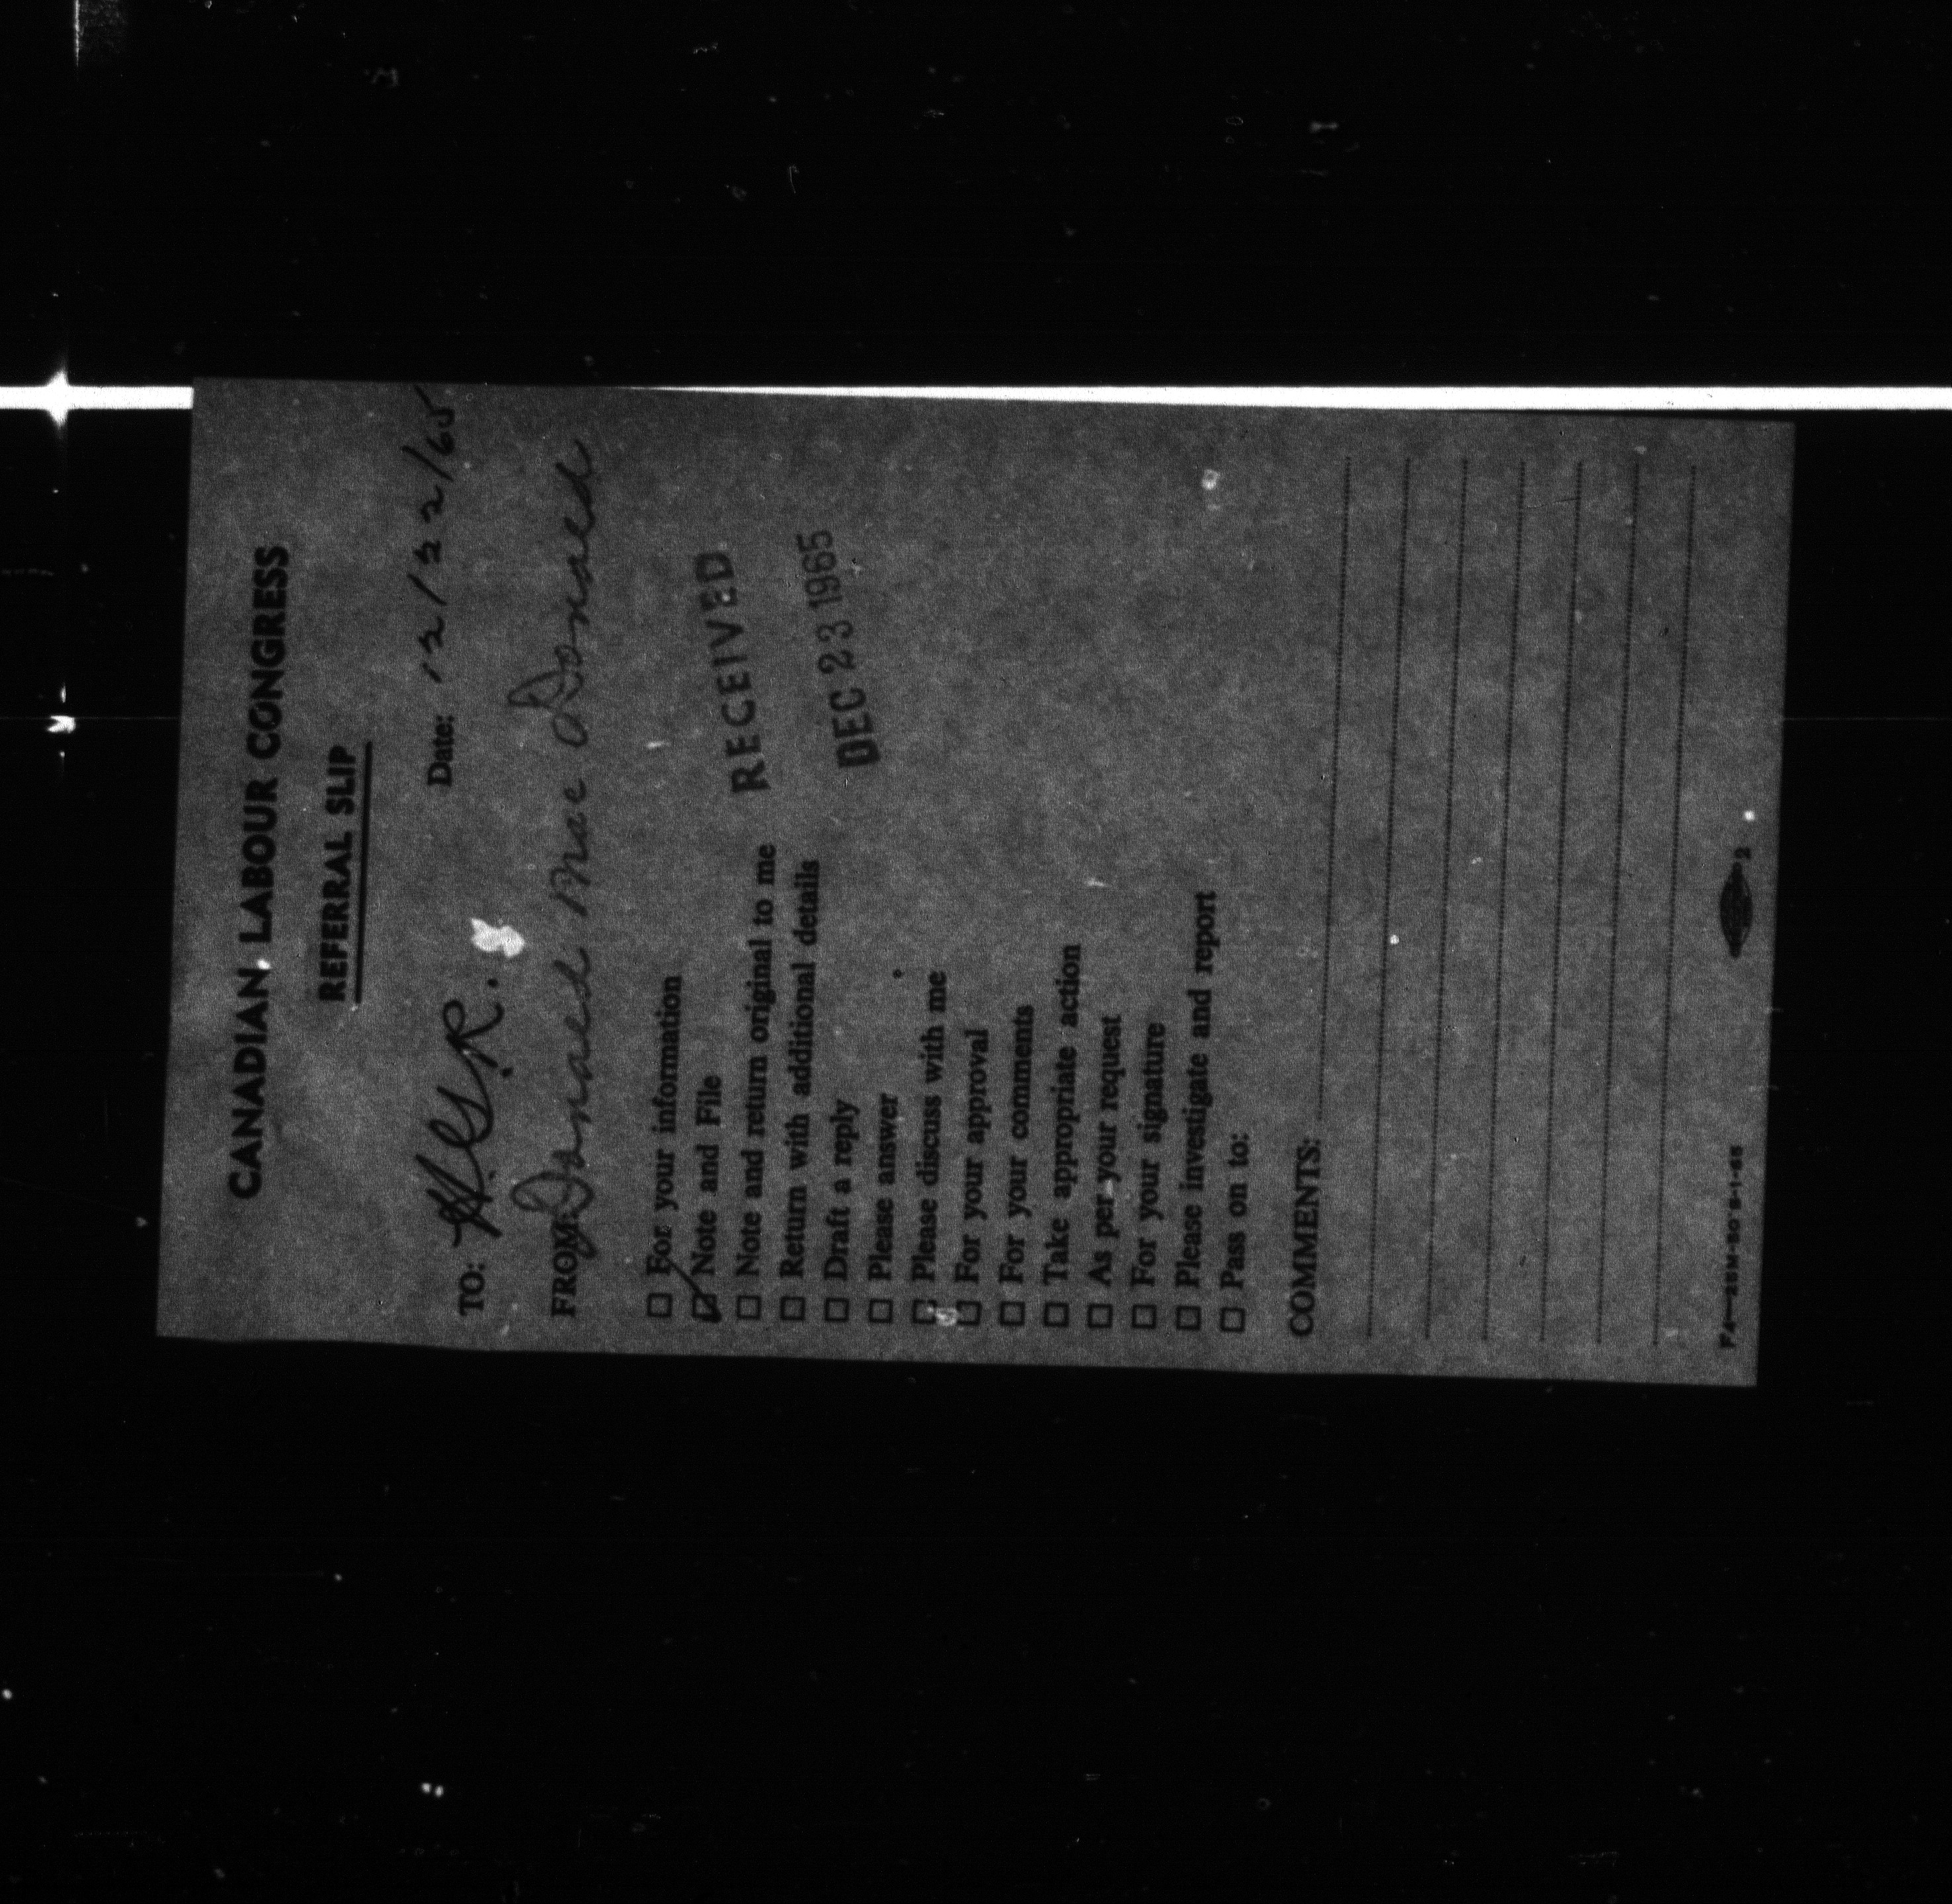 CANADIAN LABOUR CONGRESS
REFERRAL SLIP
Date: 12/22/65
TO: H.S.R.
FROM: Donald MacDonald
☐ For your information
☑ Note and File
☐ Note and return original to me
☐ Return with additional details
☐ Draft a reply
☐ Please answer
☐ Please discuss with me
☐ For your approval
☐ For your comments
☐ Take appropriate action
☐ As per your request
☐ For your signature
☐ Please investigate and report
☐ Pass on to:
RECEIVED
DEC 23 1965
COMMENTS:
2